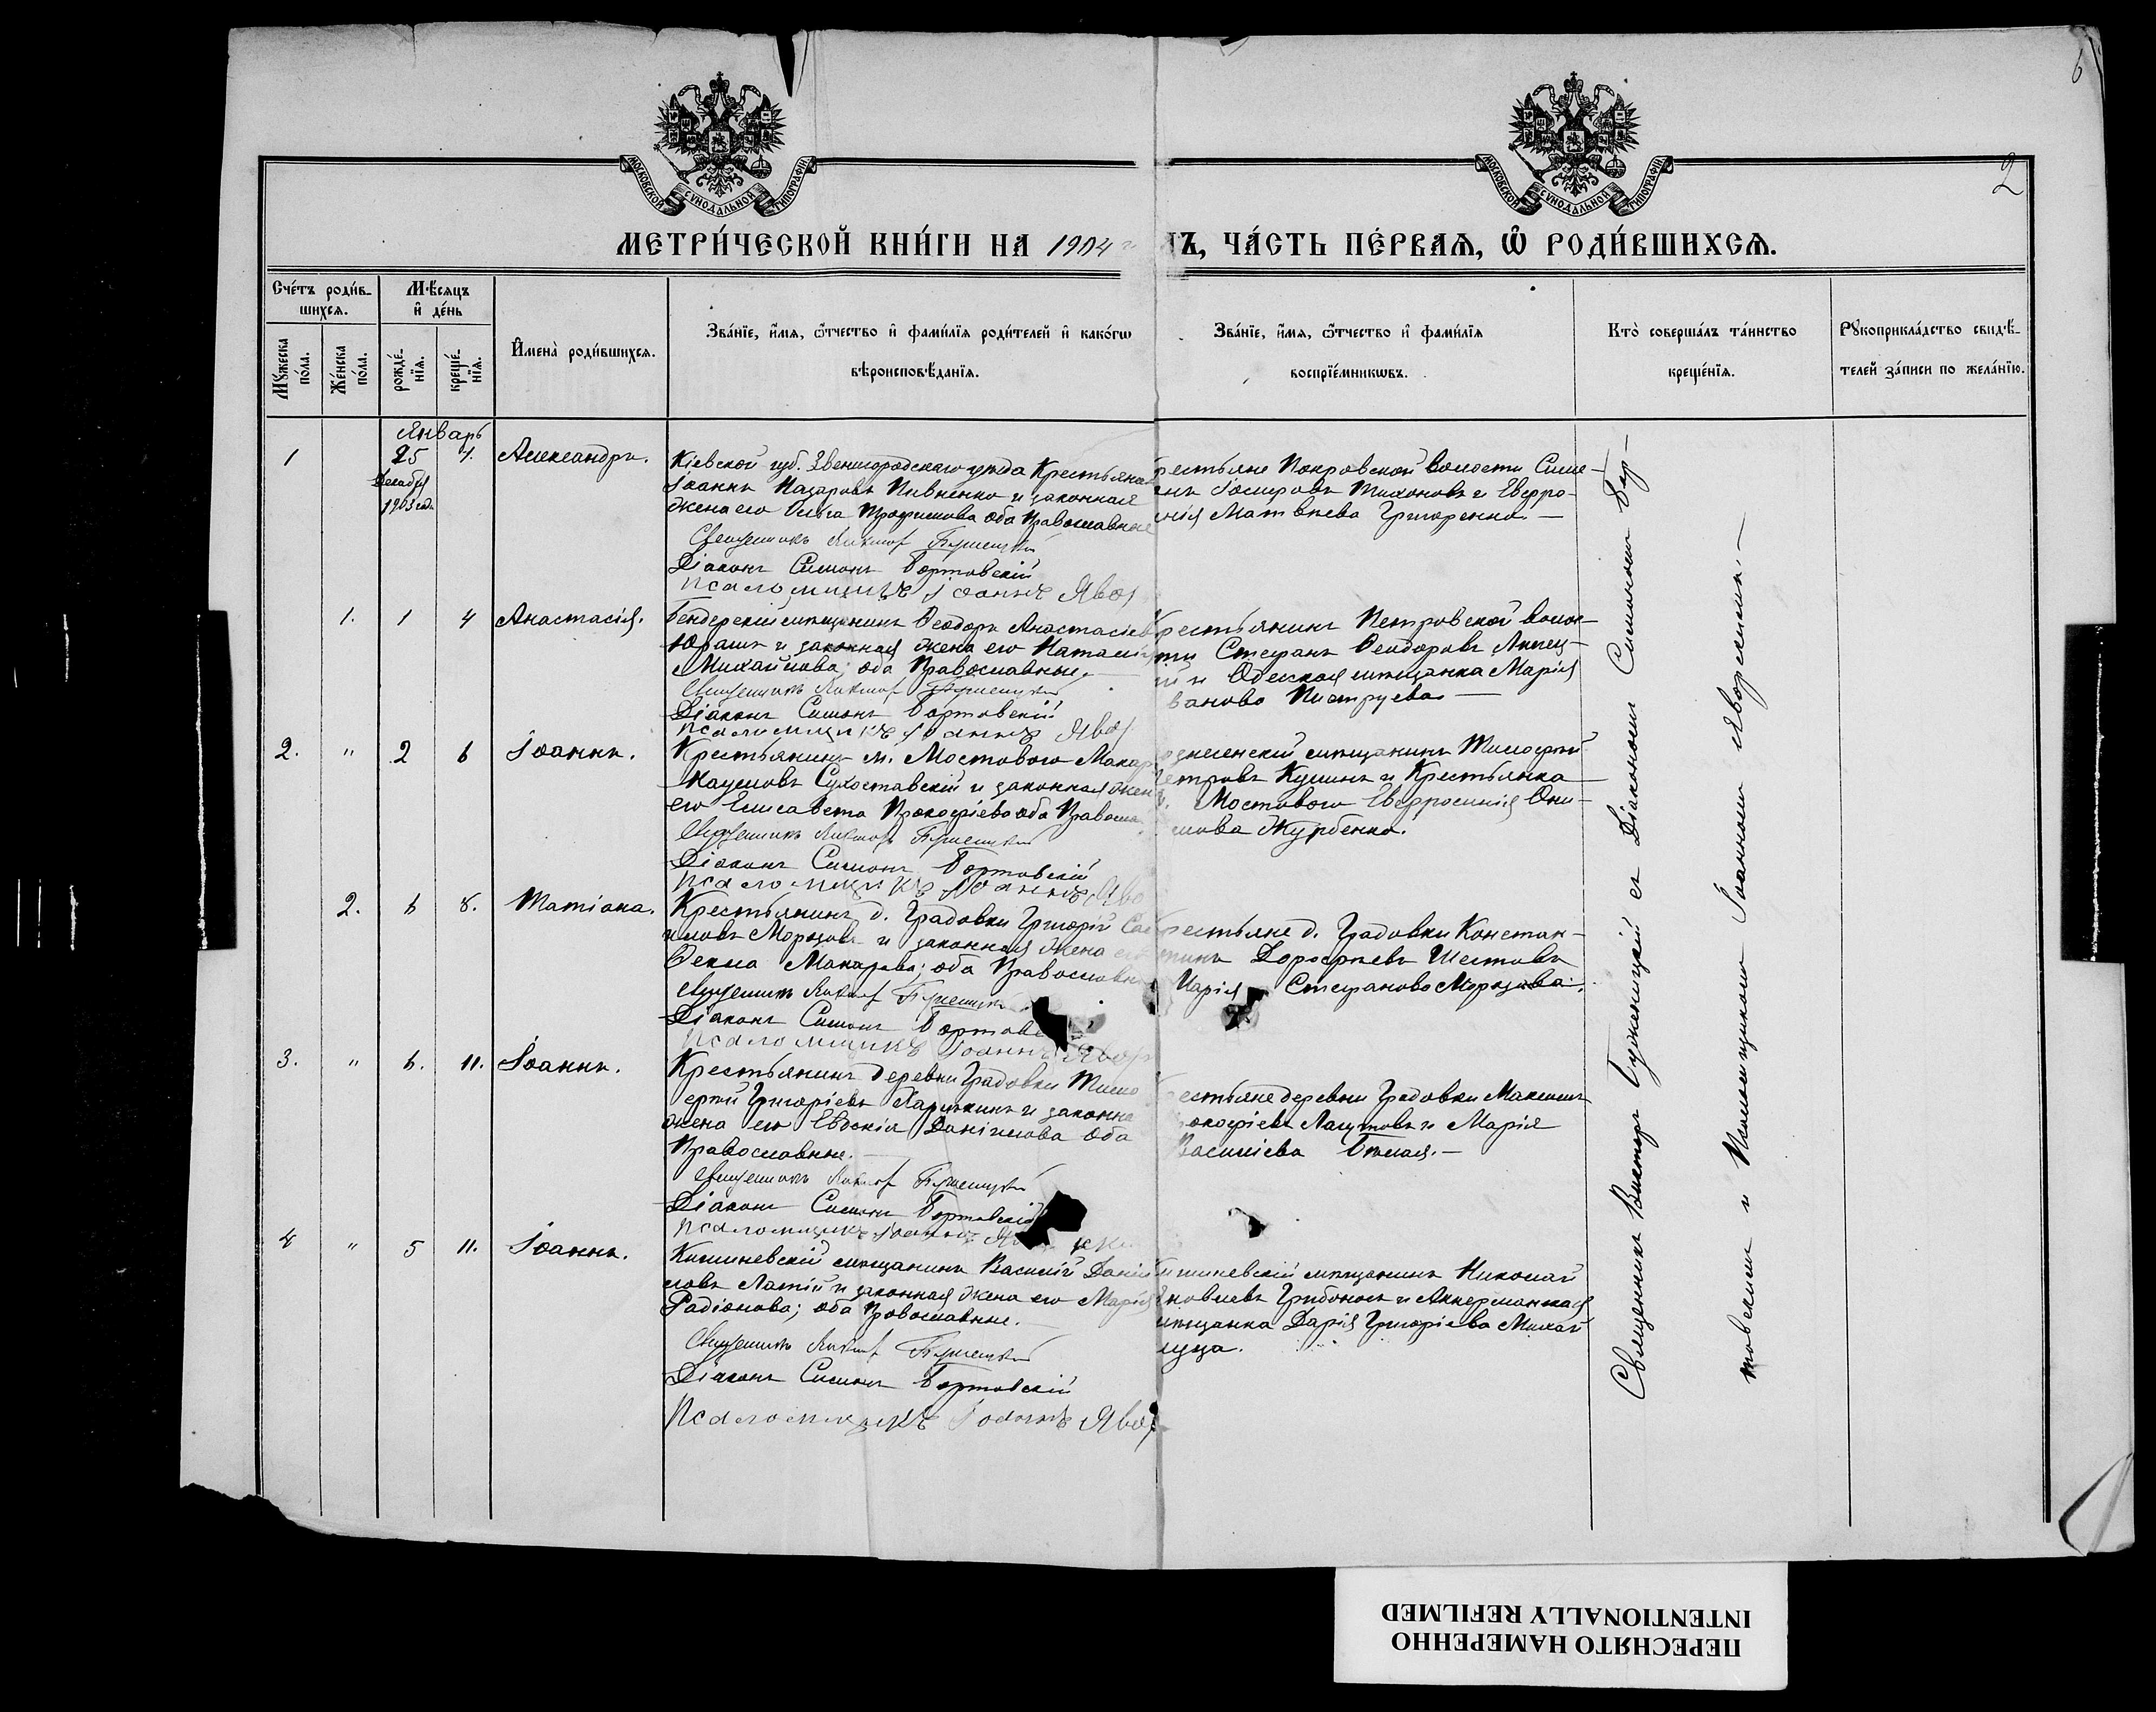 6
2
МОСКОВСКОЙ СѴНОДАЛЬНОЙ ТИПОГРАФІИ
МОСКОВСКОЙ СѴНОДАЛЬНОЙ ТИПОГРАФІИ
МЕТРИ́ЧЕСКОЙ КНИ́ГИ НА 1904 г
ДЪ, ЧА́СТЬ ПЕ́РВАЯ, Ѽ РОДИ́ВШИХСЯ.
Сче́тъ роди́в-
шихся.
Мꙋжеска по́ла.
Же́нска по́ла.
Мѣ́сяцъ и҆ де́нь
рожде́-нїя.
креще́-нїя.
И҆мена̀ роди́вшихся.
Зва́нїе, и҆́мя, ѻ҆́тчество и҆ фами́лїя роди́телей и҆ како́гѡ
вѣроисповѣ́данїя.
Зва́нїе, и҆́мя, ѻ҆́тчество и҆ фами́лїя
воспрїе́мникѡвъ.
Кто̀ соверша́лъ та́инство
креще́нїя.
Рꙋкоприкла́дство свидѣ́-
телей за́писи по жела́нїю.
Январь
1 25 4. Александръ.
Декабря
1903 года
Кіевской губ. Звенигородскаго уѣзда Крестьяне
Іоаннъ Назаровъ Пивненко и законная
жена его Ольга Трофимова оба Православные
Священникъ Викторъ
Діаконъ Симонъ Бортовскій
Псаломщикъ Іоаннъ Явор
рестьяне Покровской волости Симе-
онъ Іосифовъ Тихоновъ и Евфро-
инія Матвѣева Григоренко. —
1. 1 4 Анастасія.
Бендерскій мѣщанинъ Ѳеодоръ Анастасіев
Юрашъ и законная жена его Наталія
Михайлова; оба Православные. —
Священникъ Викторъ
Діаконъ Симонъ Бортовскій
Псаломщикъ Іоаннъ Явор
рестьянинъ Петровской волос-
ти Стефанъ Ѳеодоровъ
и Одесская мѣщанка Марія
ванова Пиструева —
2. " 2 6 Іоаннъ.
Крестьянинъ м. Мостового Макар
Наумовъ Сухоставскій и законная жен
его Елисавета Прокофіева оба Правосла
Священникъ Викторъ
Діаконъ Симонъ Бортовскій
Псаломщикъ Іоаннъ Яво
ознесенскій мѣщанинъ Тимофей
Петровъ Куминъ и Крестьянка
Мостового Евфросинія Они-
мова Журбенко.
2. 6 8. Татіана.
Крестьянинъ д. Градовки Григорій Са
иловъ Морозовъ и законная жена его
Ѳекла Макарова; оба Православн
Священникъ Викторъ
Діаконъ Симонъ Бортов
Псаломщикъ Іоаннъ Явор
рестьяне д. Градовки Констан-
тинъ Дороѳеевъ Шестовъ
Марія Стефанова Морозова.
3. " 6. 11. Іоаннъ.
Крестьянинъ деревни Градовки Тимо
ѳей Григоріевъ и законна
жена его Евдокія Даніилова оба
Православные. —
Священникъ Викторъ
Діаконъ Симонъ Бортовскій
Псаломщикъ Іоаннъ
естьяне деревни Градовки Максимъ
окофіевъ и Марія
Василіева Бѣлая. —
4 " 5 11. Іоаннъ.
Кишиневскій мѣщанинъ Василій Даніи
ловъ Латій и законная жена его Марія
Радіонова; оба Православные. —
Священникъ Викторъ
Діаконъ Симонъ Бортовскій
Псаломщикъ Іоаннъ Явор
ишиневскій мѣщанинъ Николай
Яковлевъ Грибоносъ и Аккерманская
мѣщанка Дарія Григоріева Михай
луца.
Священникъ Викторъ съ Діакономъ Симономъ Бор-
товскимъ и Псаломщикомъ Іоанномъ Яворскимъ. —
ПЕРЕСНЯТО НАМЕРЕННО
INTENTIONALLY REFILMED